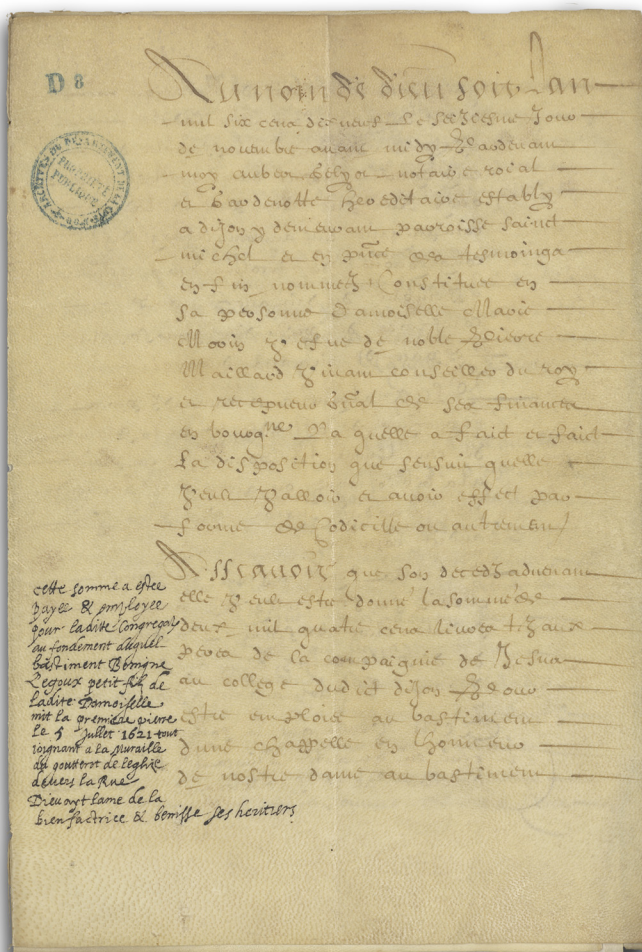 D 8
ARCHIVES DU DÉPARTEMENT DE LA CÔTE D'OR
PROPRIÉTÉ
PUBLIQUE
Au nom de dieu soit Lan
mil six cens dix neuf Le seiziesme Jour
de novembre avant midy Pardevant
moy notaire roial
et Gardenotte hereditaire estably
a dijon y demeurant parroisse sainct
michel et en pnce des tesmoings
en fin nommez Constituee en
sa personne Damoiselle Marie
Morin vefve de noble Pierre
Maillard vivant conseiller du roy
et recepveur gnal de ses finances
en bourgne Laquelle a faict et faict
La disposition que sensuit quelle
veult valloir et avoir effect par
forme de Codicille ou autrement
Assçavoir que son decedz advenant
elle veult estre donné la somme de
deux mil quatre cens livres aux
peres de la compaignie de Jesus
au college dudict dijon Pour
estre emploiee au bastiment
dune chappelle en lhonneur
de nostre dame au bastiment
cette somme a estee
payee & employee
pour ladite Congregaon
au fondement duquel
bastiment Benigne
Legoux petit fils de
ladite Damoiselle
mit la premiere pierre
le 5 Juillet 1621 tout
joignant a la muraille
du goutterot de leglise
devers la Rue
Dieu ayt lame de la
bien factrice & benisse ses heritiers